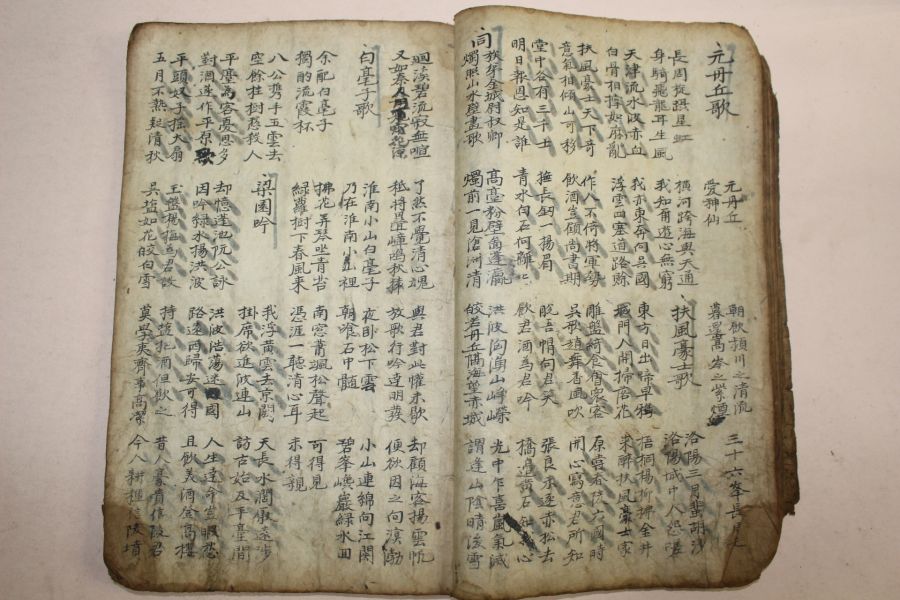 元丹丘歌
元丹丘
愛神仙
朝飮潁川之清流
暮還嵩岑之紫煙
三十六峯長周旋
長周旋躡星虹
身騎飛龍耳生風
橫河跨海與天通
我知甭遊心無窮
扶風豪士歌
洛陽三月飛胡沙
洛陽城中人怨嗟
天津流水波赤血
白骨相撐如亂麻
我亦東奔向吳國
浮雲四塞道路賒
東方日出啼早鴉
城門人開掃落花
梧桐楊柳拂金井
來醉扶風豪士家
扶風豪士天下奇
意氣相傾山可移
作人不倚將軍勢
飮酒豈顧尙書期
雕盤綺食會衆客
吳歌趙舞香風吹
原嘗春陵六國時
開心寫意君所知
堂中各有三千士
明日報恩知是誰
撫長釰一揚眉
青水白石何離離
脫吾帽向君笑
飮君酒爲君吟
張良未逐赤松去
橋邊黃石知我心
同族弟金城尉叔卿
燭照山水壁畵歌
高臺粉壁圖蓬瀛
燭前一見滄洲淸
洪波洶湧山崢嶸
皎若丹丘隔海望赤城
光中乍喜嵐氣滅
謂逢山陰晴後雪
廻溪碧流寂無喧
又如秦人月下窺花源
了然不覺清心魂
秪將疊嶂鳴秋猿
與君對此歡未歇
放歌行吟達明發
却顧海客揚雲帆
便欲因之向溟渤
白毫子歌
淮南小山白毫子
乃在淮南小山裡
夜卧松下雲
朝飡石中髓
小山連綿向江開
碧峯巉巖綠水回
余配白毫子
獨酌流霞杯
拂花弄琴坐靑苔
綠蘿樹下春風來
南窓蕭颯松聲起
憑涯一聽清心耳
可得見
未得親
八公携手五雲去
空餘桂樹愁殺人
梁園吟
我浮黃雲去京闕
掛席欲進波連山
天長水濶厭遠涉
訪古始及平臺間
平臺爲客憂思多
對酒遂作平原歌
却憶蓬池阮公詠
因吟綠水揚洪波
洪波浩蕩迷舊國
路遠西歸安可得
人生達命豈暇愁
且飮美酒登高樓
平頭奴子搖大扇
五月不熱疑清秋
玉盤楊梅爲君設
吳塩如花皎白雪
持塩把酒但飮之
莫學夷齊事高潔
昔人豪貴信陵君
今人耕種信陵墳